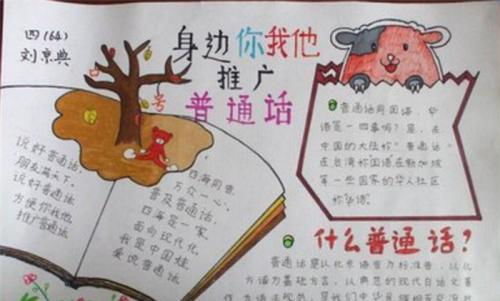 四(64)
刘京典
身边你我他
推广
普通话
说好普通话,
朋友满天下。
说好普通话
方便你我他
推广普通话
四海同音,
万众一心。
普及普通话,
四海是一家。
面向现代化,
我是中国娃,
爱说普通话
普通话同国语、华
语是一回事吗?是,去
中国的大陆称“普通话”
在台湾称国语在新加坡
等一些国家的华人社区
称华语。
什么普通话?
普通话是以北京语音为标准音,以北
方话为基础方言,以典范的现代白话文著